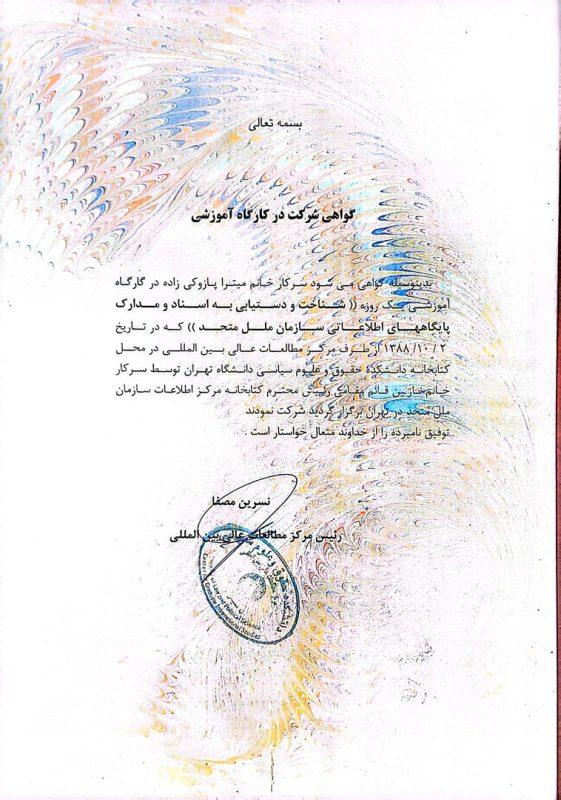 بسمه تعالی
گواهی شرکت در کارگاه آموزشی
بدینوسیله گواهی می شود سرکار خانم میترا پازوکی زاده در کارگاه
آموزشی یک روزه (( شناخت و دستیابی به اسناد و مدارک
پایگاههای اطلاعاتی سازمان ملل متحد )) که در تاریخ
۱۳۸۸/۱۰/۲ از طرف مرکز مطالعات عالی بین المللی در محل
کتابخانه دانشکده حقوق و علوم سیاسی دانشگاه تهران توسط سرکار
خانم نازنین قائم مقامی رئیس محترم کتابخانه مرکز اطلاعات سازمان
ملل متحد در تهران برگزار گردید شرکت نمودند
توفیق نامبرده را از خداوند متعال خواستار است .
نسرین مصفا
رئیس مرکز مطالعات عالی بین المللی
دانشکده حقوق و علوم
Law and Political Science
Center Graduate International Studies